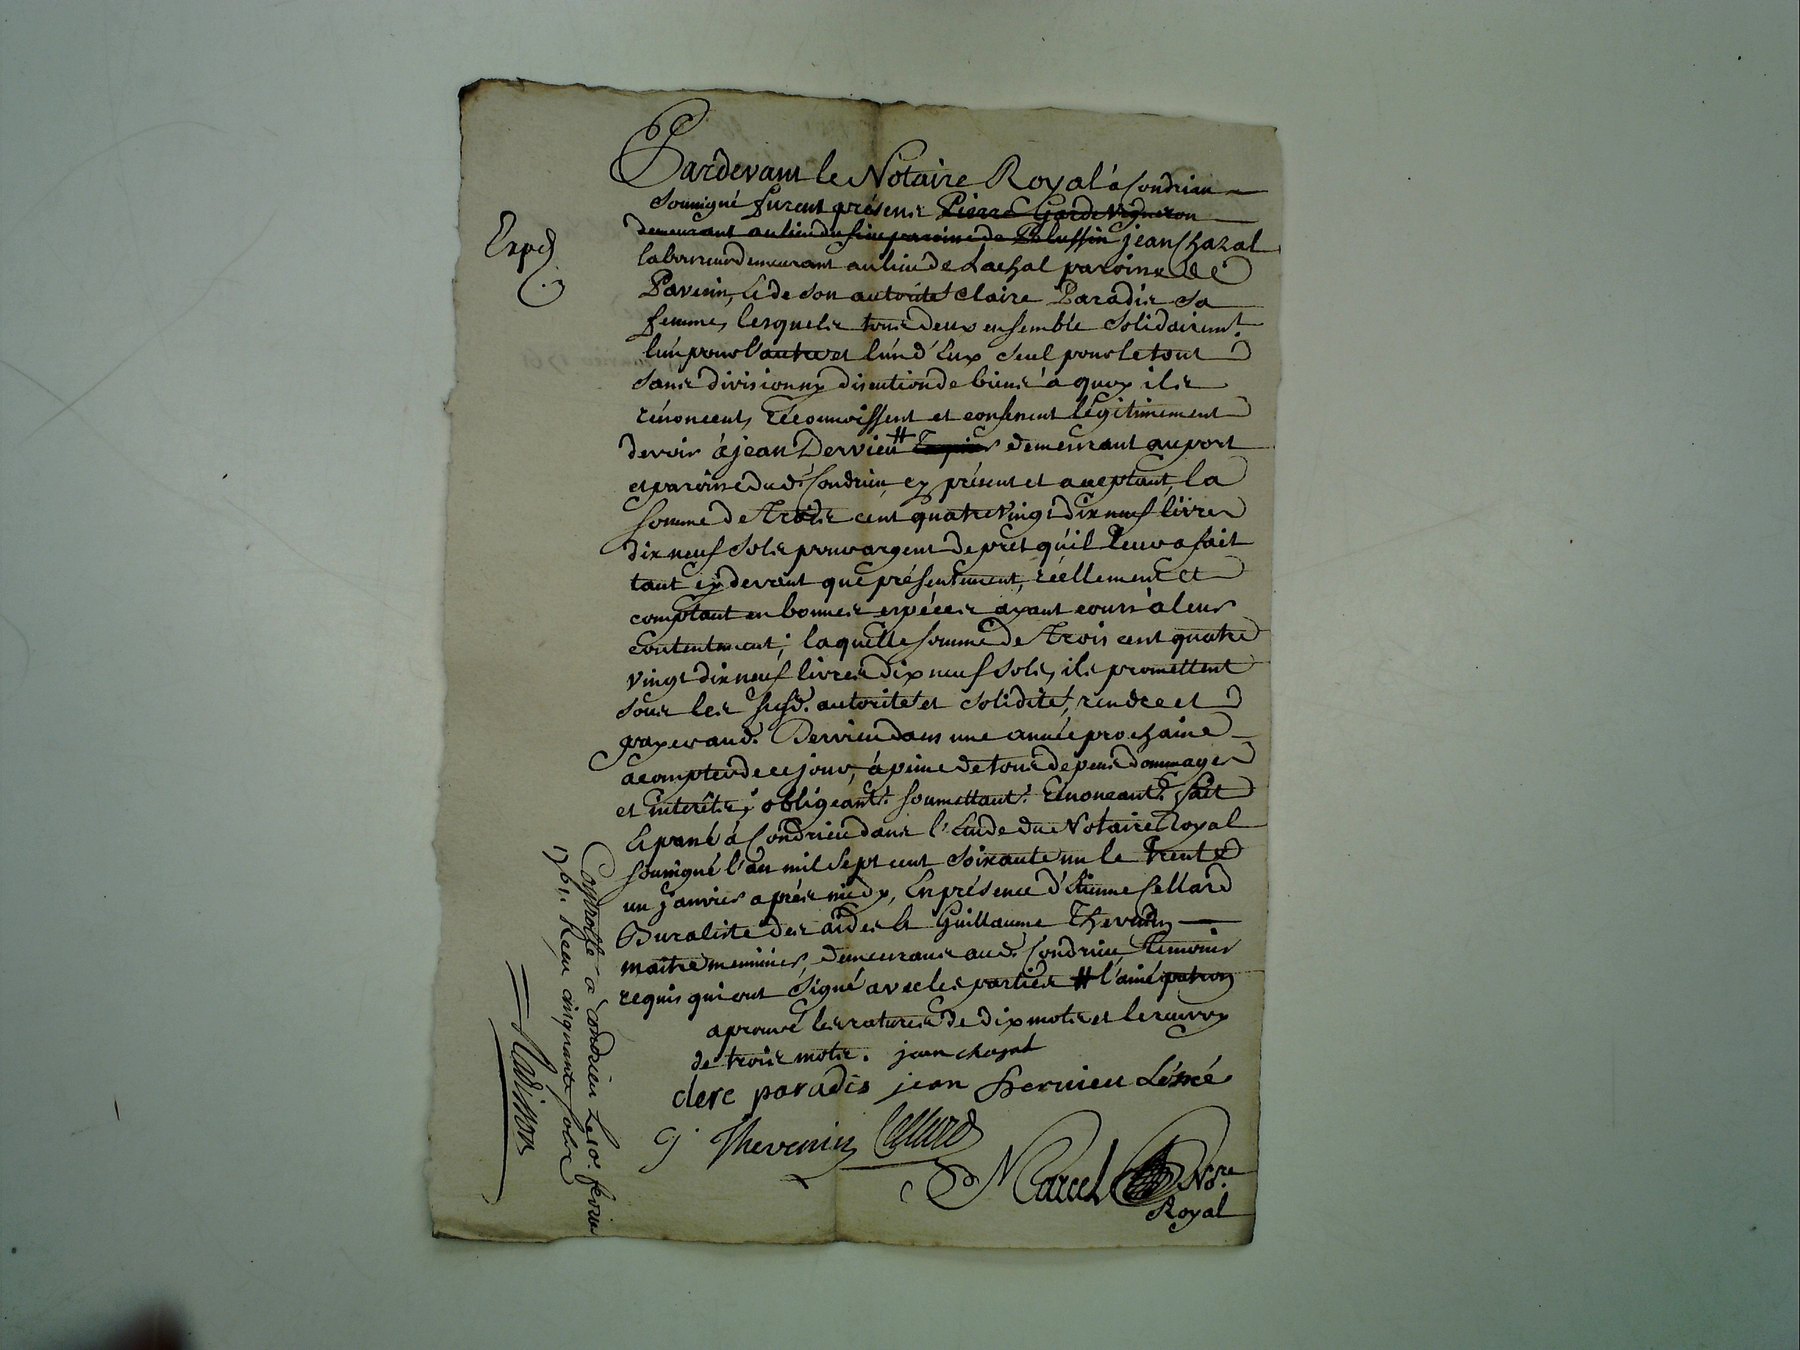 Pardevant le Notaire Royal à Condrieu
Soussigné furent présens Pierre Garde Vigneron
demeurant au lieu du paroisse de Pelussin jean Chazal
laboureur demeurant au lieu de Lachal paroisse de
Pavezin, & de son autorité Claire Paradis sa
femme, lesquels tous deux ensemble solidairemt.
l'un pour l'autre et l'un d'Eux seul pour le tout
sans division ny discution de biens à quoy ils
rénoncent, Récounoissent et confessent légitimement
devoir à jean Dervieu # demeurant au port
et paroisse dud. Condrieu, cy présent et aceptant, la
somme de Trois cent quatre vingt dix neuf livres
dix neuf sols pour argent de prêt qu'il leur a fait
tant cy devant que présentement, réellement et
comptant en bonnes espéces ayant cours à leur
contentement; laquelle somme de Trois cent quatre
vingt dix neuf livres dix neuf sols, ils promettent
sous les susd. autorité et solidité, rendre et
payer aud. Dervieu dans une année prochaine
à compter de ce jour, à peine de tous depens dommages
et interêts; obligeant. soumettant. rénonceant. fait
& passé à Condrieu dans l'Etude du Notaire Royal
soussigné l'an mil sept cent soixante un le trente
un janvier après midy, En présence d'Etienne Cellard
Buraliste des aides & Guillaume Thevenin
maitre menuisier, demeurans aud. Condrieu, témoins
requis qui ont signé avec les parties # l'ainé patron
aprouvé les ratures de dix mots et le renvoy
de trois mots. jean chazal
clere paradis jean Dervieu Léné
G. Thevenin Cellard
Marcel Nore.
Royal
Exped
Controllé a Condrieu Le 10e. fevrier
1761. Reçu cinquante sols